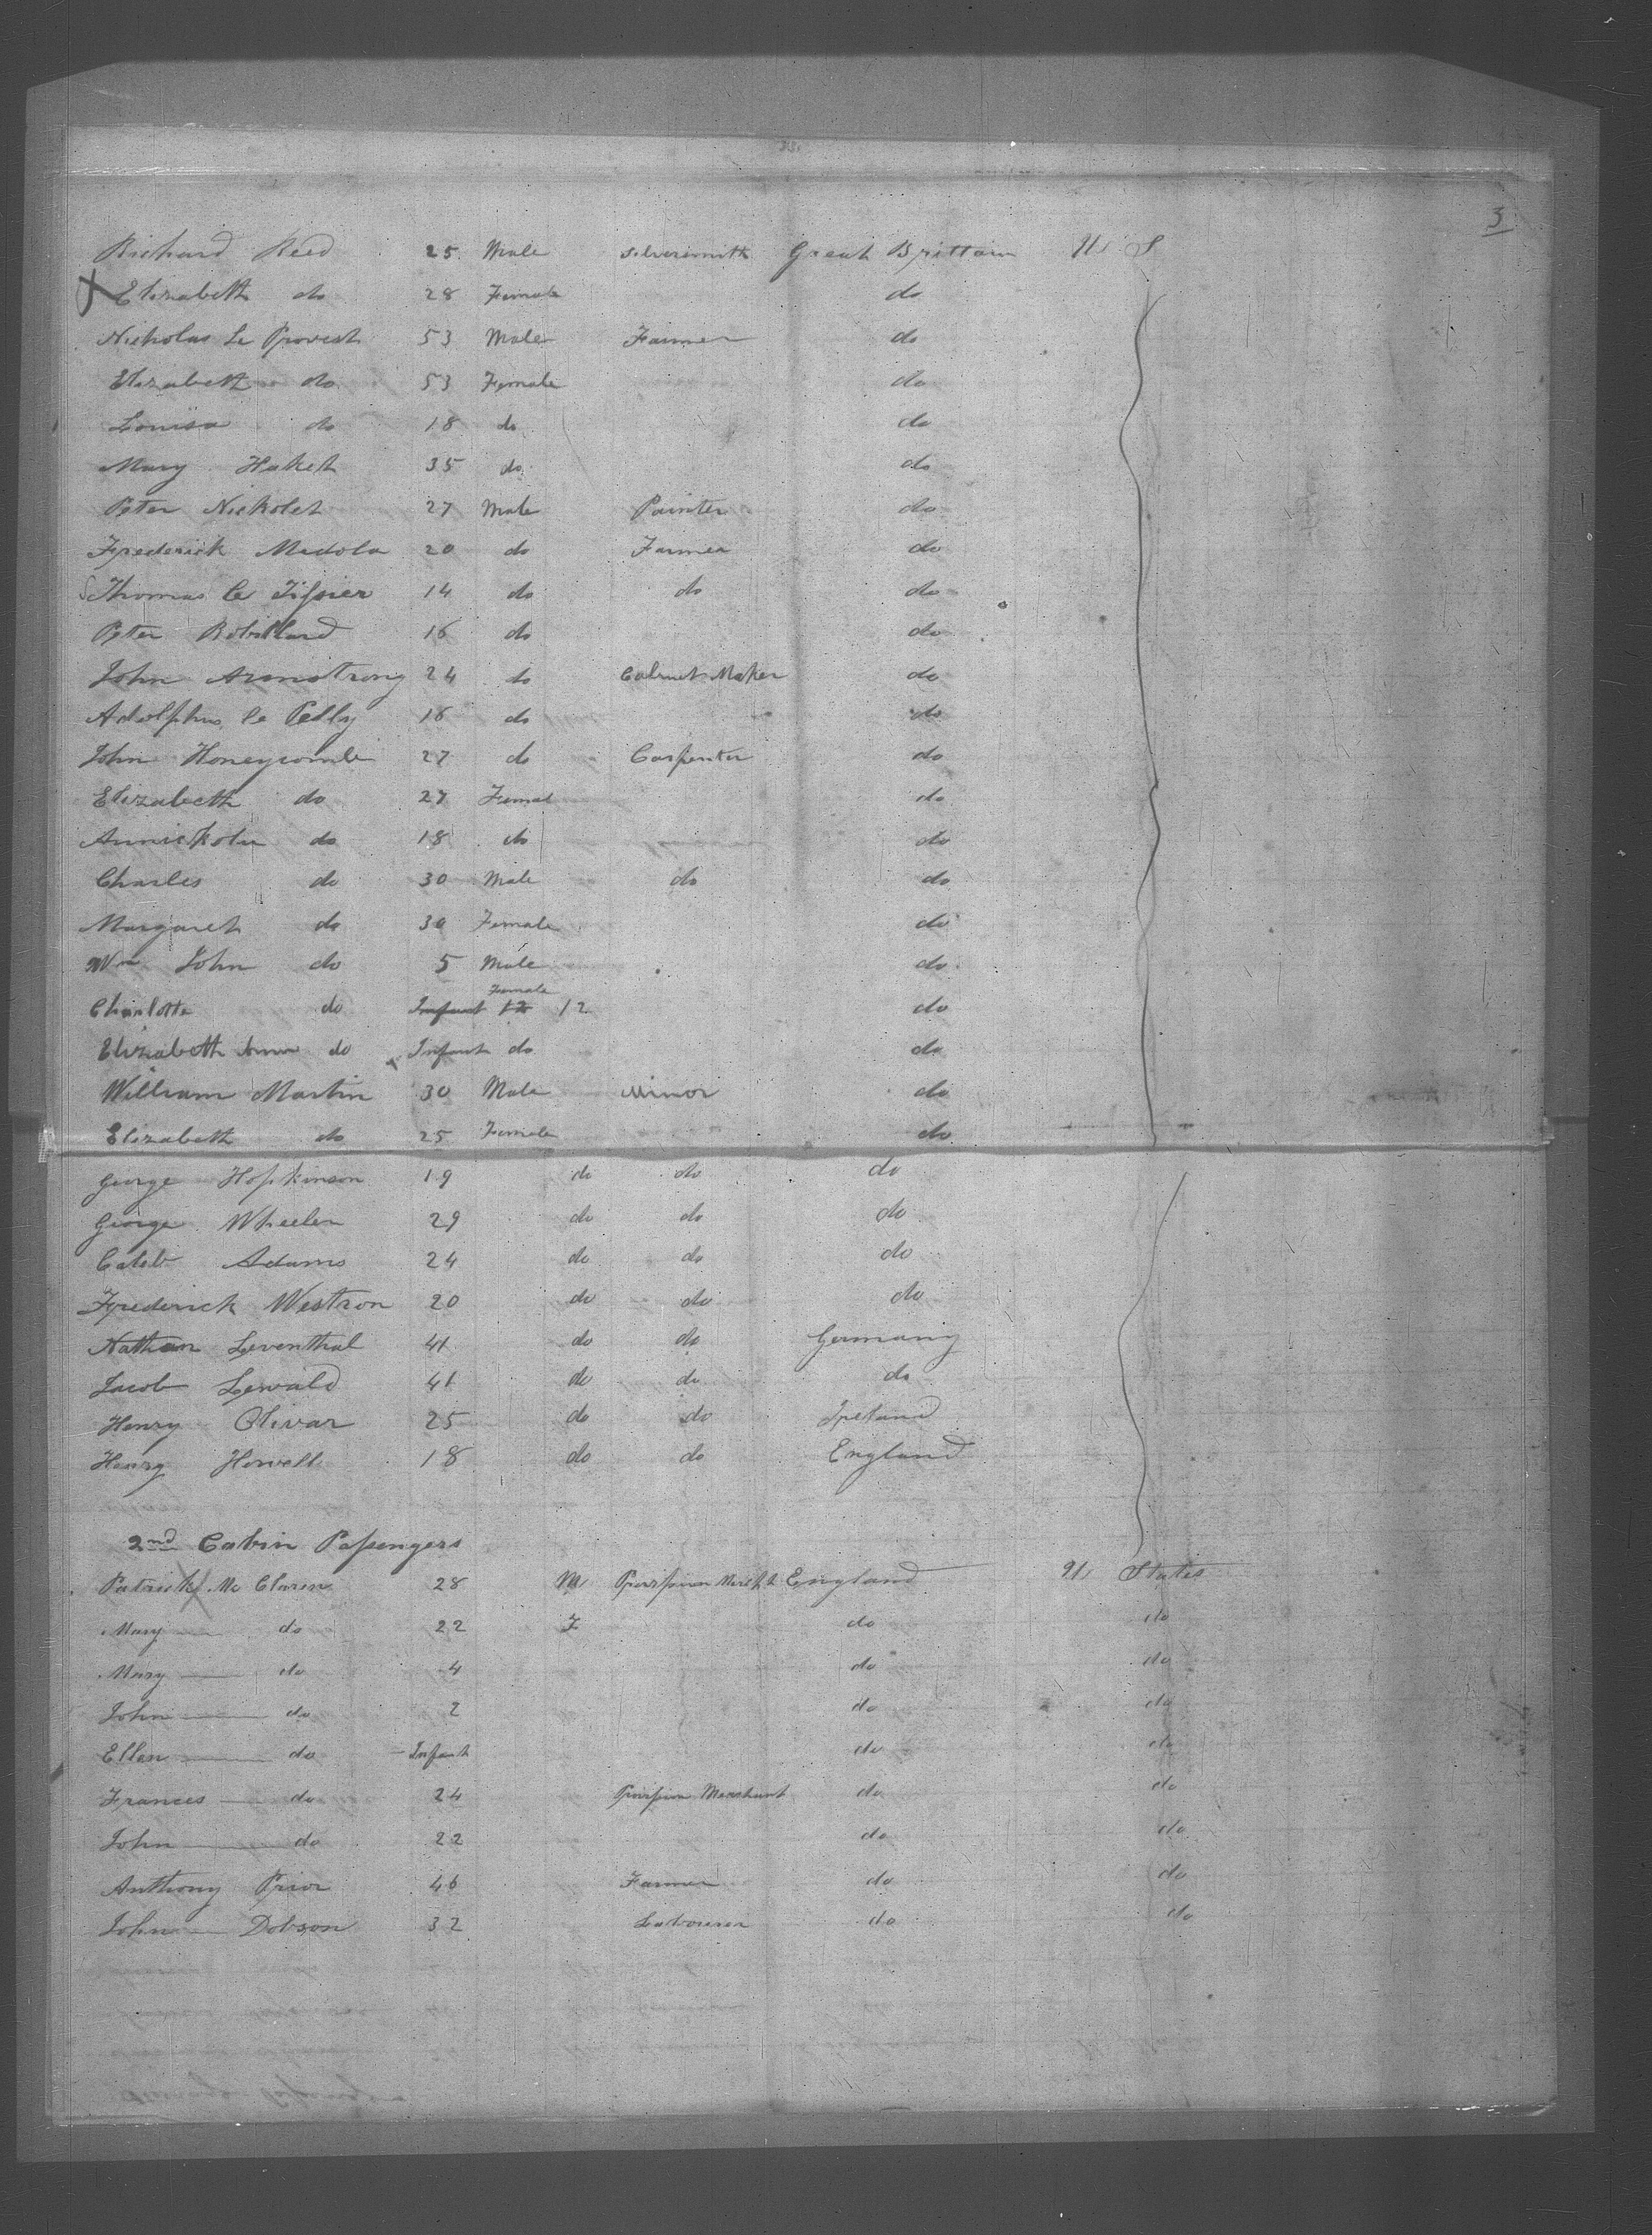 3
Richard Reed 25 Male Silversmith Great Brittain U S
Elizabeth do 28 Female do
Nicholas Le Provest 53 Male Farmer do
Elizabeth do 53 Female do
Louisa do 18 do do
Mary Haket 35 do do
Peter Nickolet 27 Male Painter do
Frederick Medola 20 do Farmer do
Thomas le Tissier 14 do do do
Peter Robillard 16 do do
John Armstrong 24 do Cabinet Maker do
Adolphus le Pelly 16 do do
John Honeycomb 27 do Carpenter do
Elizabeth do 27 Femal do
do 18 do do
Charles do 30 Male do do
Margaret do 30 Female do
Wm John do 5 Male do
Charlotte do Infant 12 Female 12 do
Elizabeth do Infant do do
William Martin 30 Male Minor do
Elizabeth do 25 Female do
George Hopkinson 19 do do do
George Wheeler 29 do do do
Caleb Adams 24 do do do
Frederick Westron 20 do do do
Nathan Leventhal 41 do do Germany
Jacob Lewald 41 do do do
Henry Olivar 25 do do Ireland
Henry Howell 18 do do England
2nd Cabin Passengers
Patrick Mc Claren 28 M England U States
Mary do 22 F do do
Mary do 4 do do
John do 2 do do
Ellen do Infant do do
Frances do 24 Merchant do do
John do 22 do do
Anthony Prior 46 Farmer do do
John Dobson 32 Labourer do do